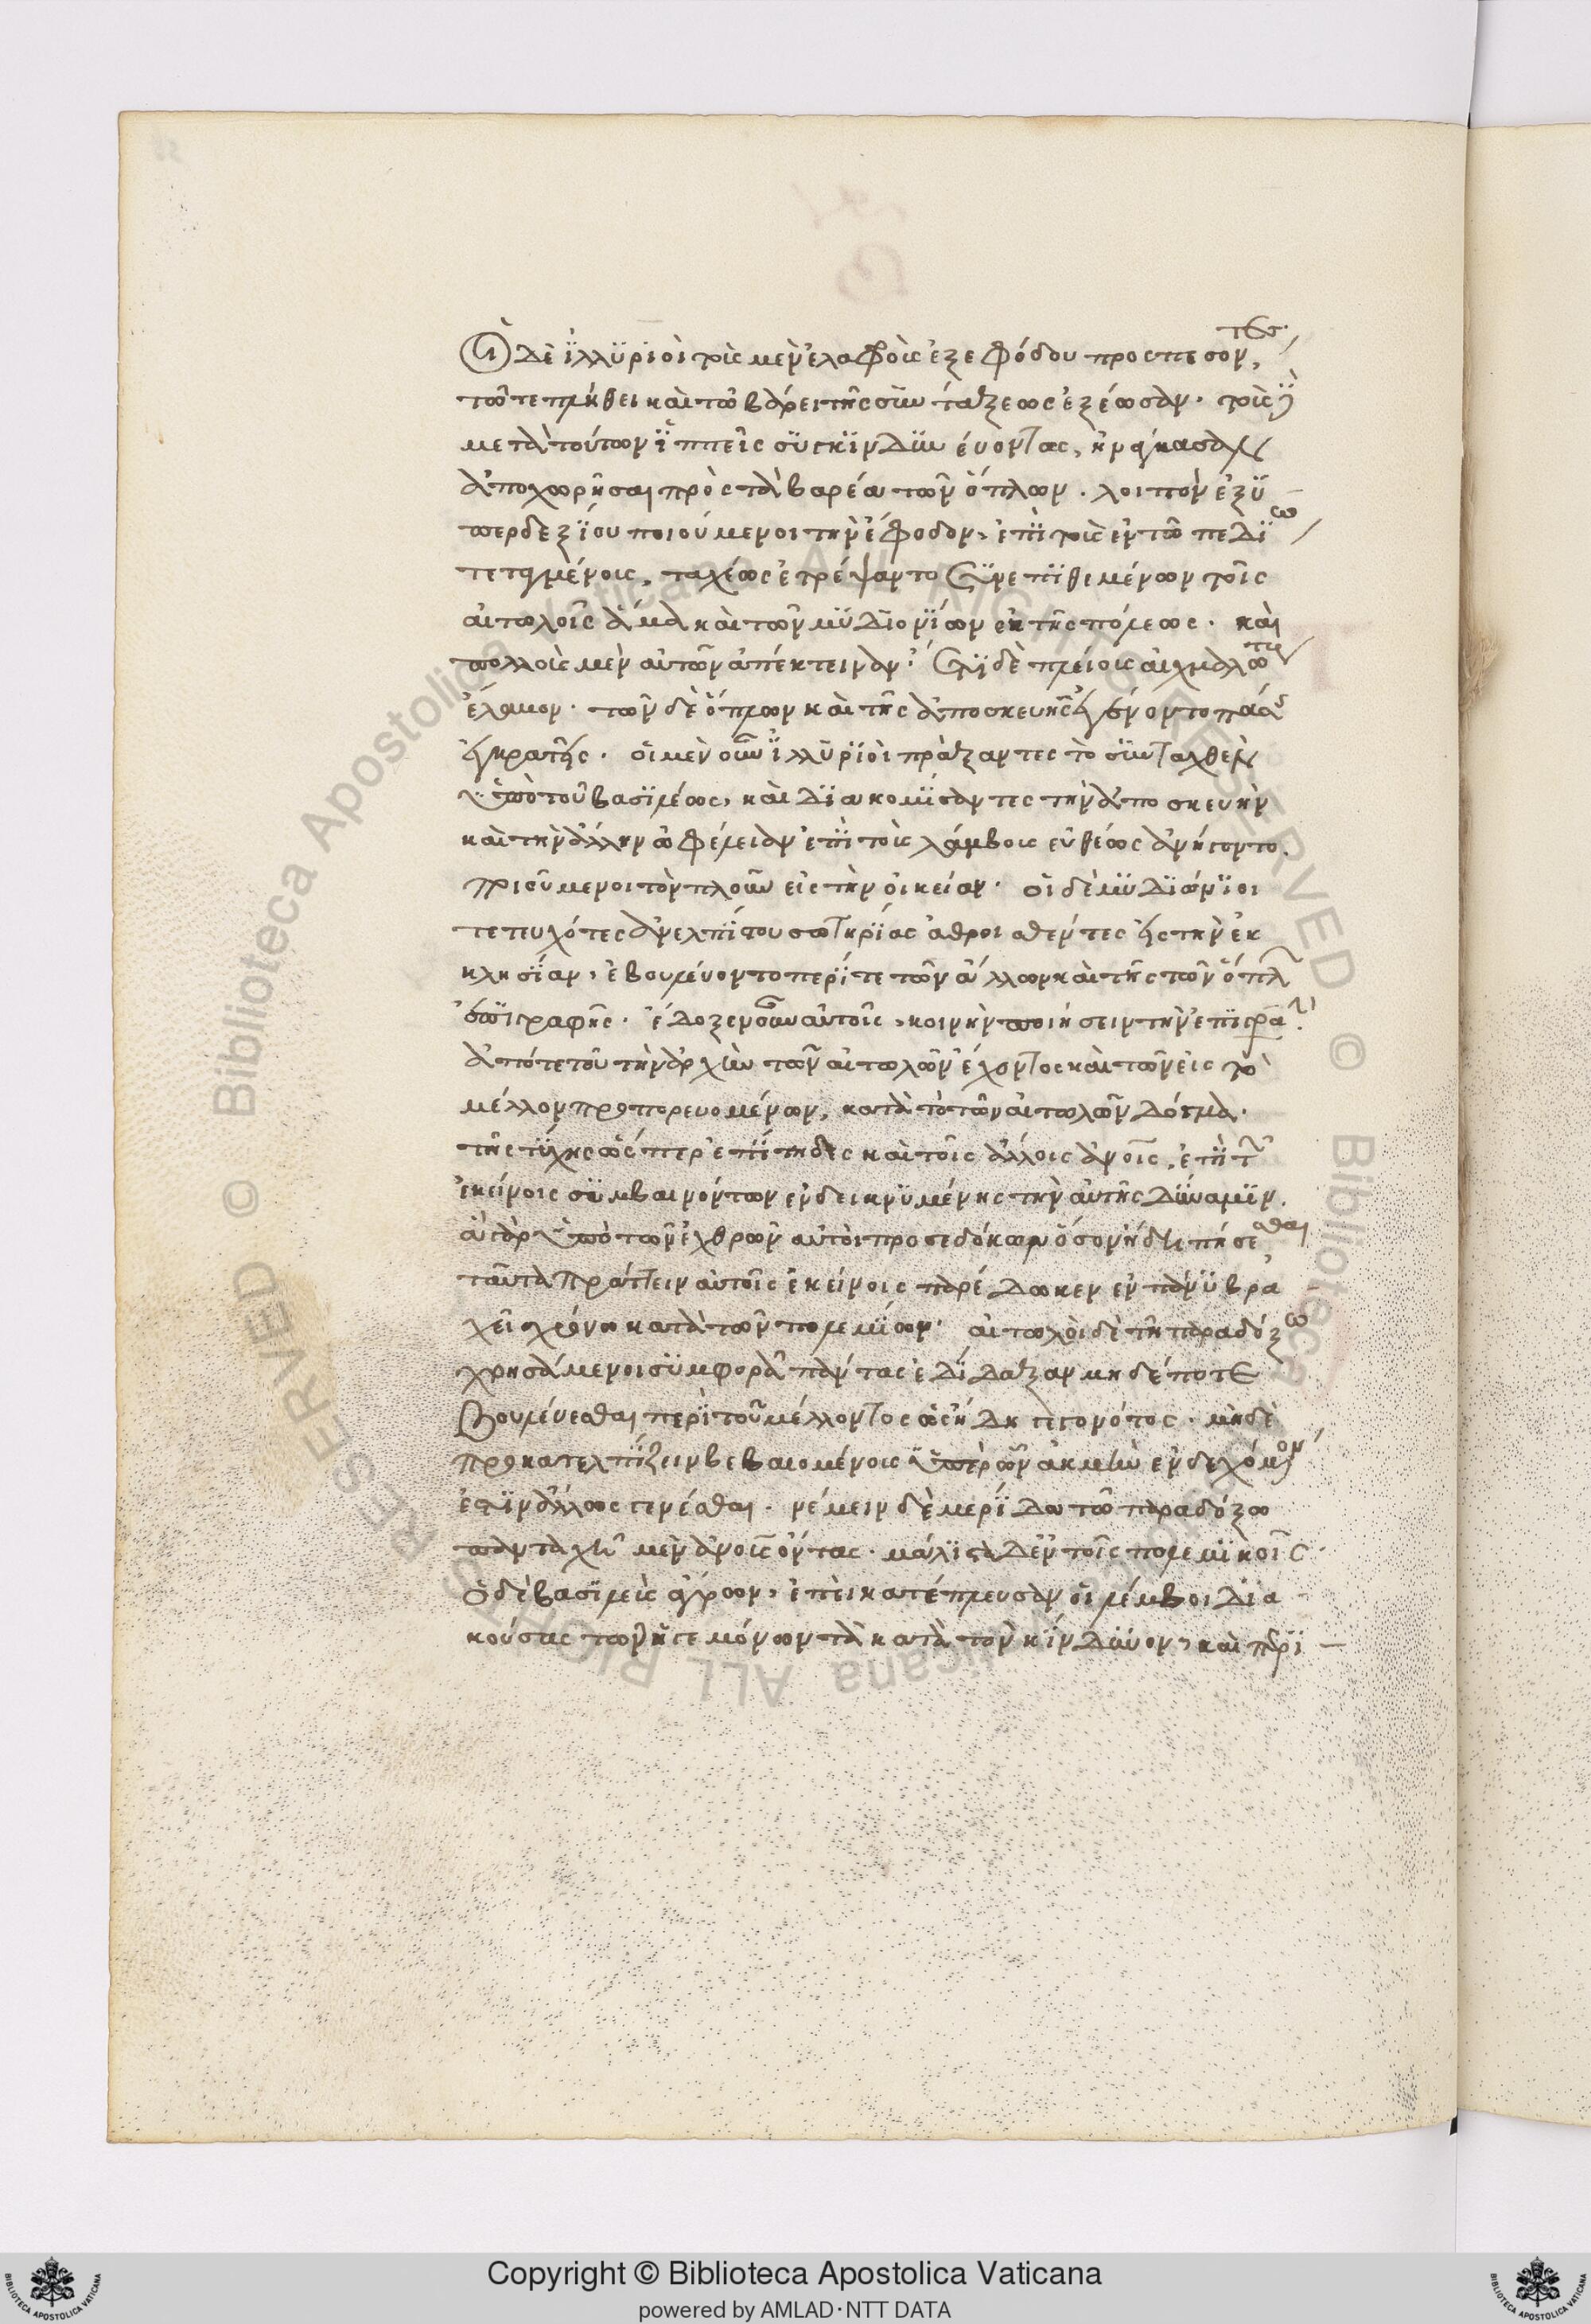 Οἱ δὲ ἰλλυριοὶ τοὺς μὲν ἐλαφροὺς ἐξ ἐφόδου προσπεσόντες,
τῶ τε πλήθει καὶ τῶ βάρει τῆς συντάξεως ἐξέωσαν. τοὺς δὲ
μετὰ τούτων ἱππεῖς συγκινδυνεύοντας, ἠνάγκασαν
ἀποχωρῆσαι πρὸς τὰ βαρέα τῶν ὅπλων. λοιπὸν ἐξ ὑ
περδεξίου ποιούμενοι τὴν ἔφοδον, ἐπὶ τοὺς ἐν τῶ πεδίω
τεταγμένους, ταχέως ἐτρέψαντο συνεπιθεμένων τοῖς
αἰτωλοῖς ἅμα καὶ τῶν μυδιονίων ἐκ τῆς πόλεως. καὶ
πολλοὺς μὲν αὐτῶν ἀπέκτειναν. ἔτι δὲ πλείους αἰχμαλώτους
ἔλαβον. τῶν δὲ ὅπλων καὶ τῆς ἀποσκευῆς ἐγένοντο πάσης
ἐγκρατεῖς. οἱ μὲν οὖν ἰλλυριοὶ πράξαντες τὸ συνταχθὲν
ὑπὸ τοῦ βασιλέως, καὶ διακομίσαντες τὴν ἀποσκευὴν
καὶ τὴν ἄλλην ὠφέλειαν ἐπὶ τοὺς λέμβους εὐθέως ἀνήγοντο.
ποιούμενοι τὸν πλοῦν εἰς τὴν οἰκείαν. οἱ δὲ μυδιώνιοι
τετευχότες ἀνελπίστου σωτηρίας ἀθροισθέντες εἰς τὴν ἐκ
κλησίαν, ἐβουλεύοντο περί τε τῶν ἄλλων καὶ τῆς τῶν ὅπλων
ἐπιγραφῆς. ἔδοξεν οὖν αὐτοῖς, κοινὴν ποιήσειν τὴν ἐπιγραφὴν
ἀπό τε τοῦ τὴν ἀρχὴν τῶν αἰτωλῶν ἔχοντος καὶ τῶν εἰς τὸ
μέλλον προπορευομένων, κατὰ τὸ τῶν αἰτωλῶν δόγμα.
τῆς τύχης ὥσπερ ἐπίτηδες καὶ τοῖς ἄλλοις ἀνοις, ἐπὶ τῶν
ἐκείνοις συμβαινόντων ἐνδεικνυμένης τὴν αὐτῆς δύναμιν.
ἃ γὰρ ὑπὸ τῶν ἐχθρῶν αὐτοὶ προσεδόκων ὅσον ἤδη πείσεσθαι
ταῦτα πράττειν αὐτοῖς ἐκείνοις παρέδωκεν ἐν πάνυ βρα
χεῖ χρόνω κατὰ τῶν πολεμίων. αἰτωλοὶ δὲ τῆ παραδόξω
χρησάμενοι συμφορᾶ πάντας ἐδίδαξαν μηδέποτε
βουλεύεσθαι περὶ τοῦ μέλλοντος ὡς ἤδη γεγονότος. μηδὲ
προκατελπίζειν βεβαιουμένους ὑπὲρ ὧν ἀκμὴν ἐνδεχόμενόν
ἐστιν ἄλλως γενέσθαι. νέμειν δὲ μερίδα τῶ παραδόξω
πανταχῆ μὲν ἀνοις ὄντας. μάλιστα δ' ἐν τοῖς πολεμικοῖς.
Ὁ δὲ βασιλεὺς ἄγρων, ἐπεὶ κατέπλευσαν οἱ λέμβοι δια
κούσας τῶν ἡγεμόνων τὰ κατὰ τὸν κίνδυνον, καὶ περι